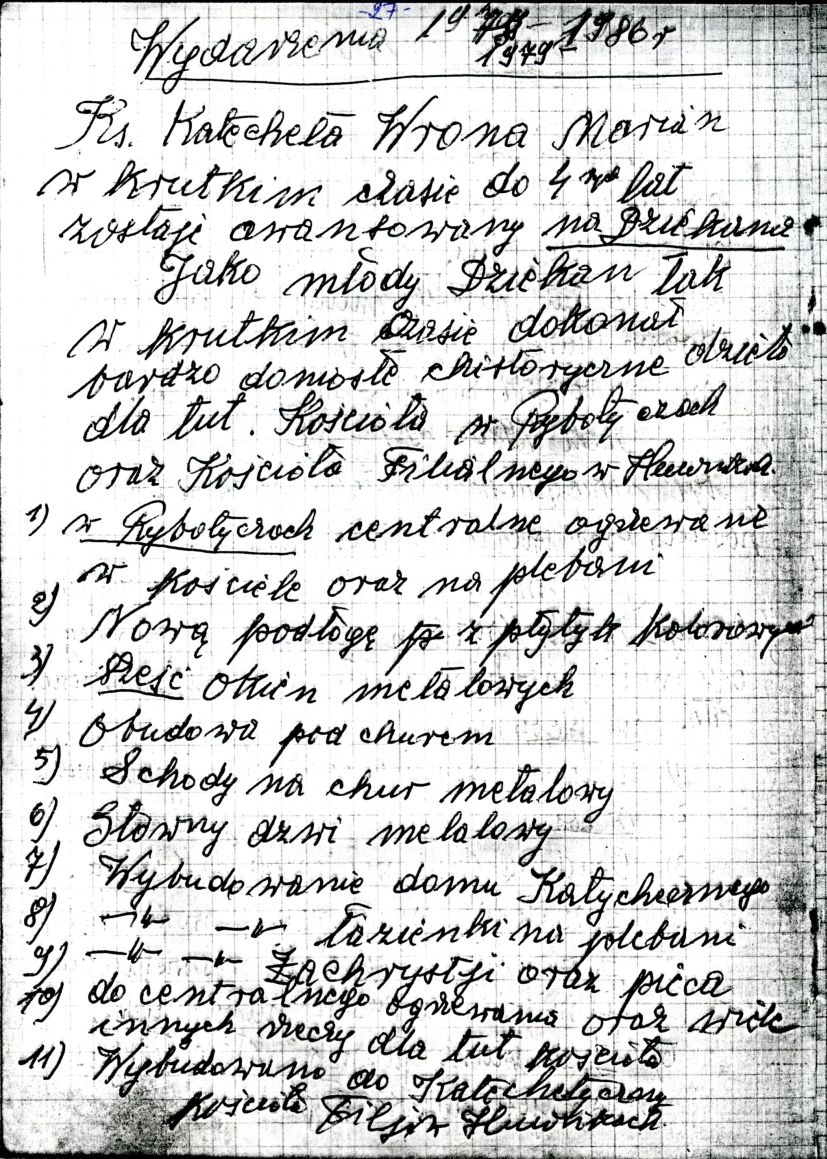 -27-
Wydarzenia 19 - 1986 r
1979
Ks. Katecheta Wrona Marian
w krutkim czasie do 4 lat
zostaje awansowany na Dziekana
Jako młody Dziekan tak
w krutkim czasie dokonał
bardzo doniosłe chistoryczne dzieło
dla tut. Kościoła w Rybotyczach
oraz Kościoła Filialnego w
1) w Rybotyczach centralne ogrzewanie
w kosciele oraz na plebani
2) Nową podłogę z płytyk kolorowych
3) Sześć okien metalowych
4) Obudowa pod churem
5) Schody na chur metalowy
6) Głowny dzwi metalowy
7) Wybudowanie domu Katychecznego
8) -"- -"- łazienki na plebani
9) -"- -"- Zachrystji oraz pieca
10) do centralnego ogrzewania oraz wiele
innych rzeczy dla tut kościoła
11) Wybudowano do
Kościoła